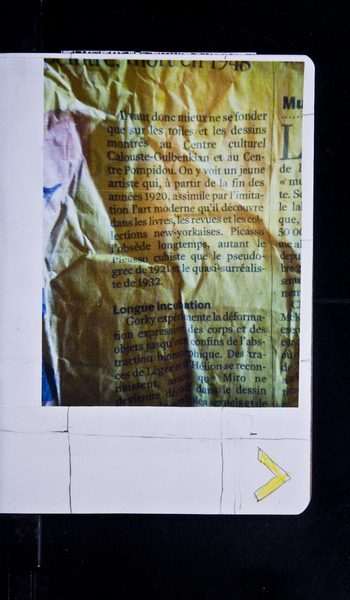 peintre, mort en 1948
Il vaut donc mieux ne se fonder
que sur les toiles et les dessins
montrés au Centre culturel
Calouste-Gulbenkian et au Cen-
tre Pompidou. On y voit un jeune
artiste qui, à partir de la fin des
années 1920, assimile par l'imita-
tion l'art moderne qu'il découvre
dans les livres, les revues et les col-
lections new-yorkaises. Picasso
l'obsède longtemps, autant le
Picasso cubiste que le pseudo-
grec de 1921 et le quasi-surréalis-
te de 1932.
Longue incubation
Gorky expérimente la déforma-
tion expressive des corps et des
objets jusqu'aux confins de l'abs-
traction biomorphique. Des tra-
ces de Léger et d'Hélion se recon-
naissent, avant que Miro ne
devienne, décisif dans le dessin
sexuels et de
Mu
L
de l
« mu
te. Se
le la
que,
50 00
me al
depu
bre 2
sem
nent